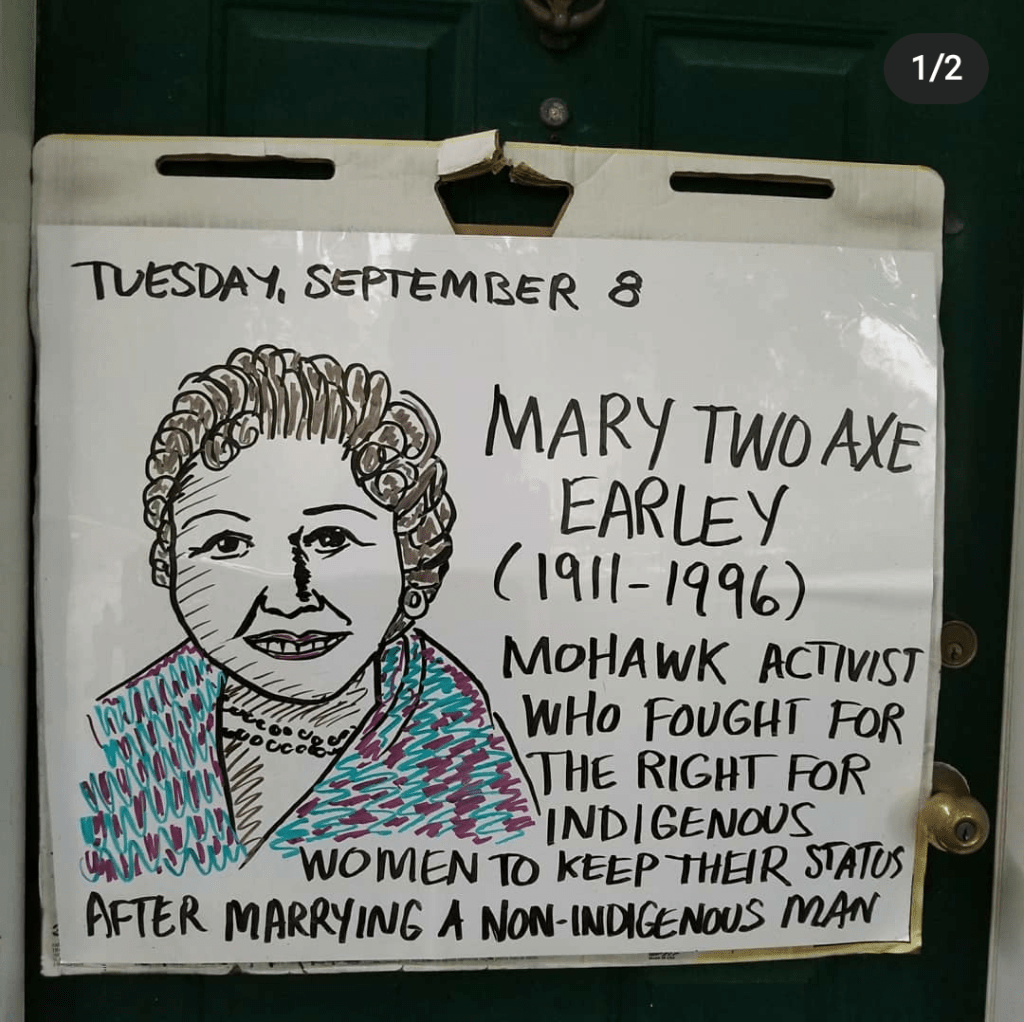 1/2
TUESDAY, SEPTEMBER 8
MARY TWO AXE
EARLEY
(1911-1996)
MOHAWK ACTIVIST
WHO FOUGHT FOR
THE RIGHT FOR
INDIGENOUS
WOMEN TO KEEP THEIR STATUS
AFTER MARRYING A NON-INDIGENOUS MAN